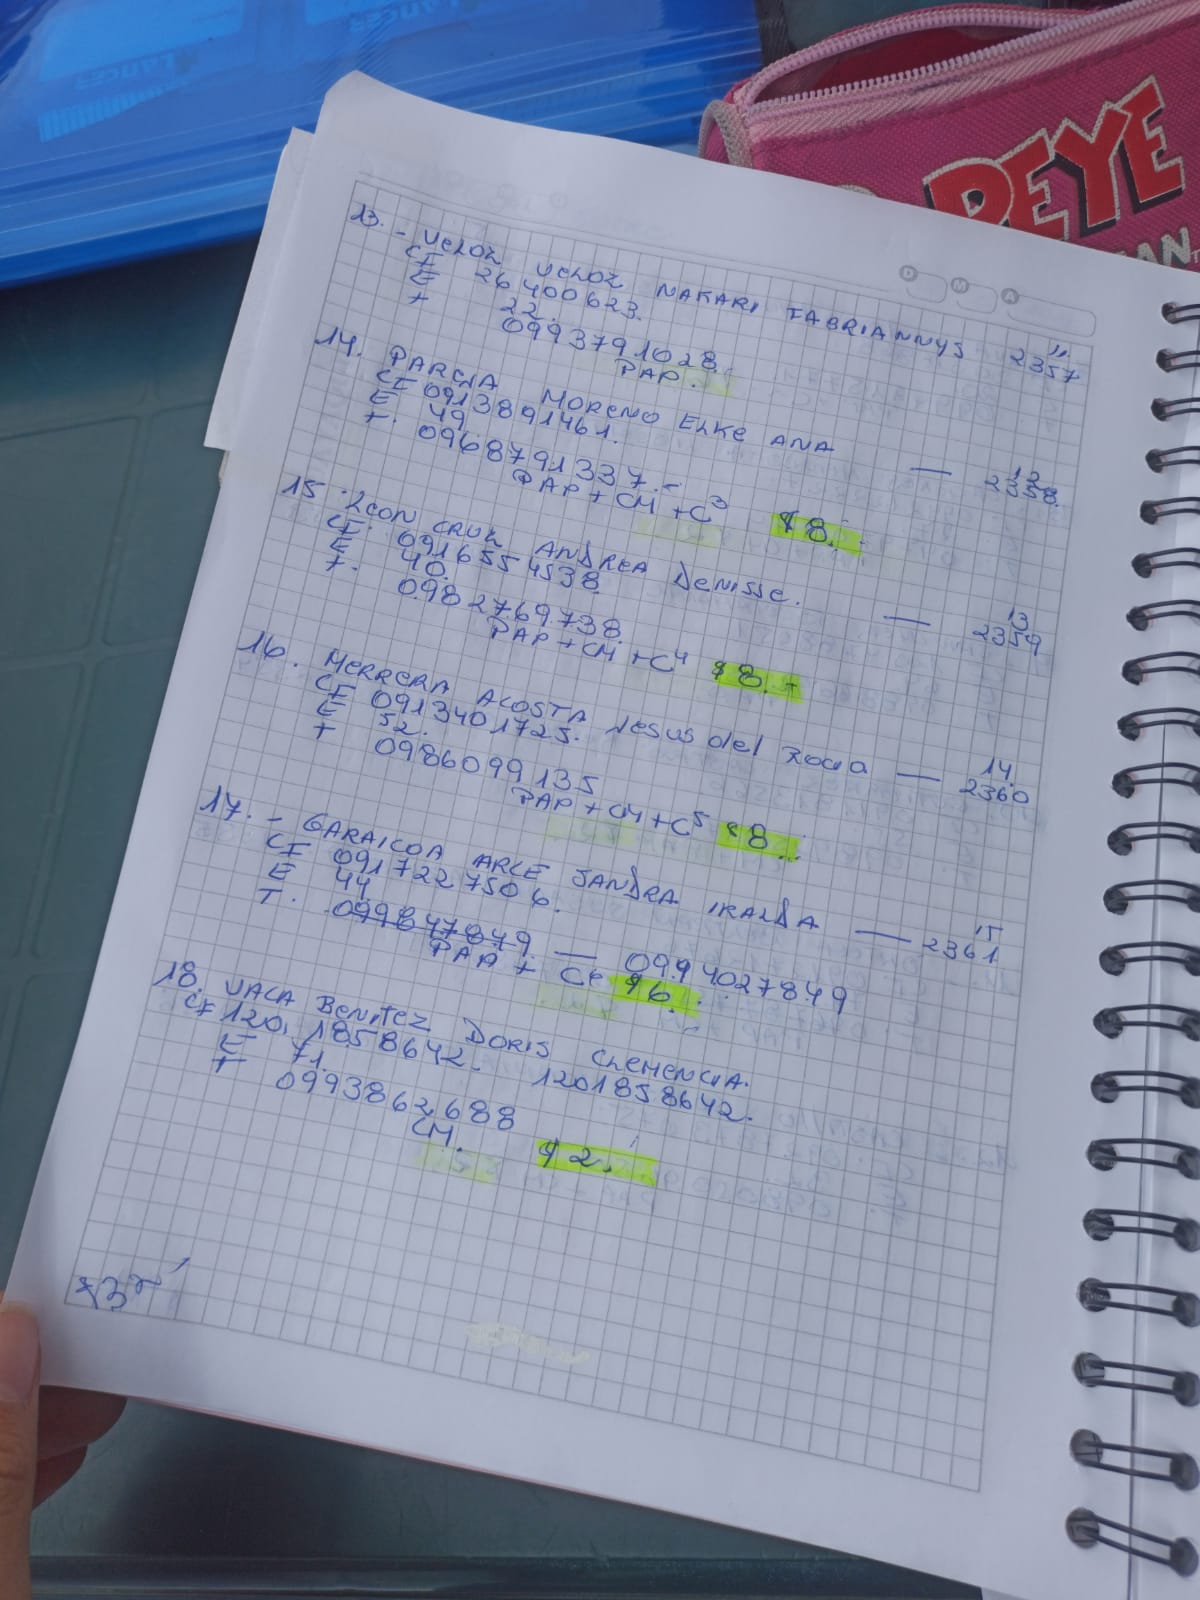 PEYE
D M A
13. - Veloz Veloz NAKARI FABRIANNYS 11. 2357
CI 26400623.
E 22.
T 0993791028.
PAP.
14. PARCIA MORENO ELKE ANA — 12 2358.
CI 0913891461.
E 49.
T. 0968791337.-
PAP + CM + C3 $8.
15. CRUZ ANDREA DENISSE. — 13 2359
CI. 0916554538
E 40.
T. 0982769738.
PAP + CM + C4 $8.-
16. HERRERA ACOSTA Jesus del Rocio — 14. 2360
CI 0913401725.
E 52.
T 0986099135
PAP + CM + C5 $8.
17. - GARAICOA ARCE SANDRA IRALDA — 15 2361
CI 0917227506.
E 44.
T. 099847879. — 0994027849
PAP + C6 $6.
18. VACA BENITEZ DORIS CLEMENCIA.
CI 1201858642. 1201858642.
E 71.
T 0993862688
CM. $2.